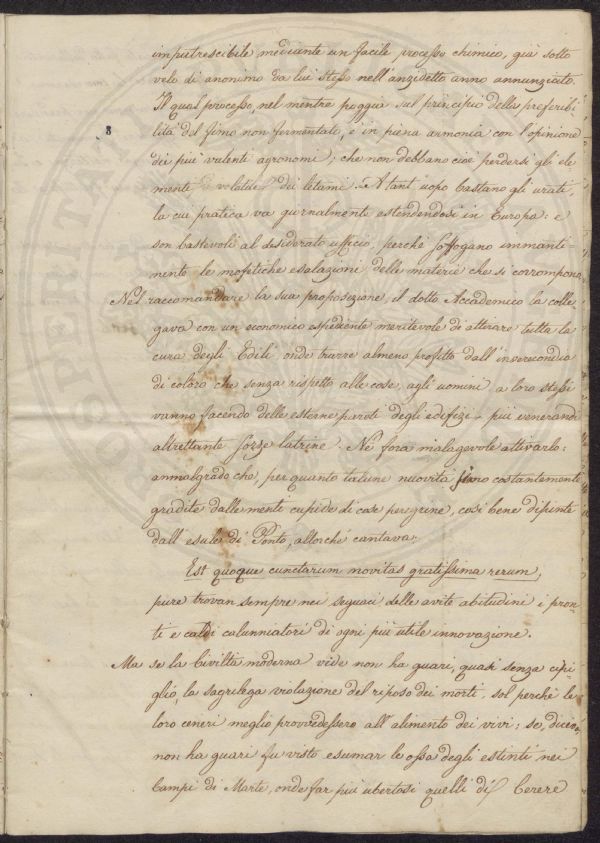 impietrescibile mediante un facile processo chimico, già sotto
velo di anonimo da lui stesso nell'anzidetto anno annunziato.
Il qual processo, nel mentre poggia sul principio della preferibi-
8
lità del fimo non fermentato, è in piena armonia con l'opinione
dei più valenti agronomi; che non debbano cioè perdersi gli ele
menti volatili dei letami. A tant'uopo bastano gli urati,
la cui pratica va giornalmente estendendosi in Europa: e
son bastevoli al desiderato ufficio, perchè soffogano immanti-
nente le mofetiche esalazioni delle materie che si corrompono.
Nel raccomandare la sua proposizione, il dotto Accademico la colle
gava con un economico espediente meritevole di attirare tutta la
cura degli Edili onde trarre almeno profitto dall'inverecondia
di coloro che senza rispetto alle case, agli uomini, a loro stessi
vanno facendo delle esterne pareti degli edifizi più venerandi
altrettante sozze latrine. Nè fora malagevole attivarlo:
ammalgrado che, per quanto talune nuovità sieno costantemente
gradite dalle menti cupide di cose peregrine, così bene dipinte
dall'esule di Ponto, allorchè cantava:
Est quoque cunctarum novitas gratissima rerum,
pure trovan sempre nei seguaci delle avite abitudini i pron-
ti e caldi calunniatori di ogni più utile innovazione.
Ma se la Civiltà moderna vide non ha guari, quasi senza cipi-
glio, la sagrilega violazione del riposo dei morti, sol perchè le
loro ceneri meglio provvedessero all'alimento dei vivi: se, dicea,
non ha guari fu visto esumar le ossa degli estinti nei
Campi di Marte, onde far più ubertosi quelli di Cerere
POSTERITATI